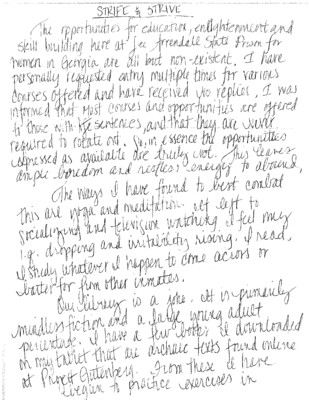 STRIFE & STRIVE
The opportunities for education, enlightenment and
skill building here at Lee Arrendale State Prison for
women in Georgia are all but non-existent. I have
personally requested entry multiple times for various
courses offered and have received no replies. I was
informed that most courses and opportunities are offered
to those with life sentences, and that they are never
required to rotate out. So, in essence the opportunities
expressed as available are truely not. This leaves
ample boredom and restless energy to abound,
The ways I have found to best combat
this are yoga and meditation. Yet left to
socializing and television watching I feel my
i.q. dropping and irritability rising. I read,
I study whatever I happen to come across or
barter for from other inmates.
Our library is a joke. It is primarily
mindless fiction and a large young adult
percentage. I have a few books I downloaded
on my tablet that are archaic texts found online
at Project Gutenberg. From these I have
begun to practice exercises in